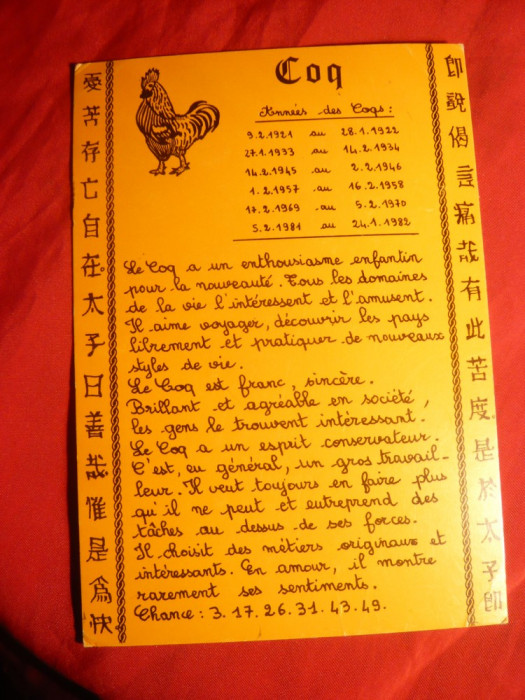 Coq
Années des Coqs :
9.2.1921 au 28.1.1922
27.1.1933 au 14.2.1934
14.2.1945 au 2.2.1946
1.2.1957 au 16.2.1958
17.2.1969 au 5.2.1970
5.2.1981 au 24.1.1982
Le Coq a un enthousiasme enfantin
pour la nouveauté. Tous les domaines
de la vie l'intéressent et l'amusent.
Il aime voyager, découvrir les pays
librement et pratiquer de nouveaux
styles de vie.
Le Coq est franc, sincère.
Brillant et agréable en société,
les gens le trouvent intéressant.
Le Coq a un esprit conservateur.
C'est, en général, un gros travail-
leur. Il veut toujours en faire plus
qu'il ne peut et entreprend des
tâches au dessus de ses forces.
Il choisit des métiers originaux et
intéressants. En amour, il montre
rarement ses sentiments.
Chance : 3. 17. 26. 31. 43. 49.
愛苦存亡自在太子曰善哉惟是為快
即說偈言痛哉有此苦度是於太子即